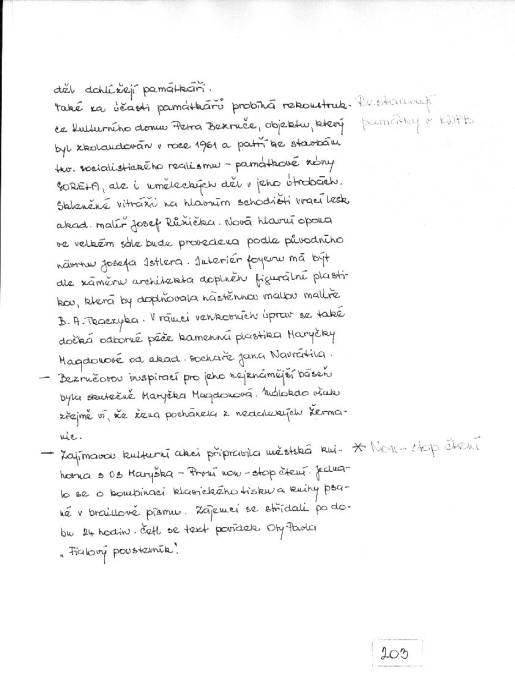 děl dohlížejí památkáři.
Také za účasti památkářů probíhá rekonstruk-
ce Kulturního domu Petra Bezruče, objektu, který
byl zkolaudován v roce 1961 a patří ke stavbám
tzv. socialistického realismu – památkové zóny
SORELA, ale i uměleckých děl v jeho útrobách.
Skleněné vitráži na hlavním schodišti vrací lesk
akad. malíř Josef Růžička. Nová hlavní opona
ve velkém sále bude provedena podle původního
návrhu Josefa Istlera. Interiér foyeru má být
dle záměru architekta doplněn figurální plasti-
kou, která by doplňovala nástěnnou malbu malíře
B. A. Tkaczyka. V rámci venkovních úprav se také
dočká odborné péče kamenná plastika Maryčky
Magdonové od akad. sochaře Jana Navrátila.
— Bezručovou inspirací pro jeho nejznámější báseň
byla skutečně Maryčka Magdonová. Málokdo však
zřejmě ví, že žena pocházela z nedalekých Žerma-
nic.
— Zajímavou kulturní akci připravila městská kni-
hovna s OS Maryčka – První non-stop čtení. Jedna-
lo se o kombinaci klasického tisku a knihy psa-
né v braillově písmu. Zájemci se střídali po do-
bu 24 hodin. Četl se text povídek Oty Pavla
„Fialový poustevník".
Restaurují
památky v KDPB
* Non-stop čtení
203